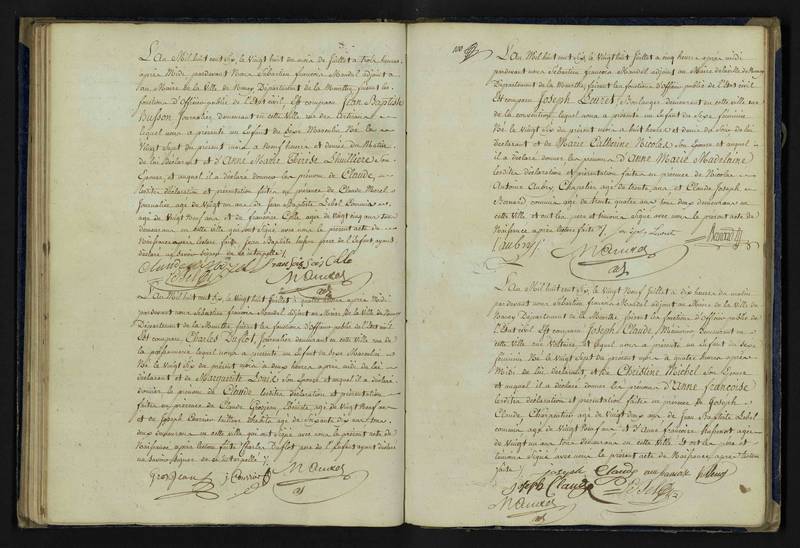 L'An Mil huit cent Six, le Vingt huit du mois de Juillet à trois heures
après Midi pardevant Nous Sébastien françois Mandel adjoint au
Maire de la Ville de Nancy, Département de la Meurthe, faisant les
fonctions d'Officier public de l'Etat civil. Est comparu Jean Baptiste
Busson, Journalier, demeurant en cette Ville rue des Artisans
lequel nous a présenté un Enfant du Sexe Masculin Né le
Vingt Sept du présent mois à Neuf heures et demie du Matin,
de lui Déclarant et d'Anne Marie Thérèse Lhuillière Son
Epouse, et auquel il a déclaré donner le prénom de Claude,
lesdites déclaration et présentation faites en présence de Claude Morel
Journalier agé de Vingt un ans, de Jean Baptiste Lebel
agé de Vingt Neuf ans et de françois Colle agé de Vingt cinq ans tous
demeurans en cette Ville qui ont signé avec nous le présent acte de
Naissance après lecture faite, Jean Baptiste père de l'Enfant ayant
déclaré ne savoir signer de ce interpellé
françois Colle
Mandel
L'An Mil huit cent Six, le Vingt huit Juillet à quatre heures après Midi
pardevant nous Sébastien françois Mandel adjoint au Maire de la Ville de Nancy
Département de la Meurthe, faisant les fonctions d'officier public de l'Etat civil.
Est comparu Charles Duflot, Journalier demeurant en cette Ville rue de
la poissonnerie lequel nous a présenté un Enfant du Sexe Masculin
Né le Vingt Six du présent mois à deux heures après midi de lui
déclarant et de Marguerite Louis Son Epouse et auquel il a déclaré
donner le prénom de Claude lesdites déclaration et présentation
faites en présence de Claude Grosjean, agé de Vingt Neuf ans
et de Joseph agé de ans tous
deux demeurans en cette Ville qui ont signé avec nous le présent acte de
Naissance après lecture faite Charles Duflot père de l'Enfant ayant déclaré
ne savoir signer de ce interpellé
Grosjean Mandel
100
L'An Mil huit cent Six, le Vingt huit Juillet à cinq heures après midi
pardevant nous Sébastien françois Mandel adjoint au Maire de la Ville de Nancy
Département de la Meurthe, faisant les fonctions d'officier public de l'Etat civil
Est comparu Joseph Louret, Boulanger demeurant en cette Ville rue
de la convention lequel nous a présenté un Enfant du Sexe féminin
Né le Vingt Six du présent mois à huit heures et demie du Soir de lui
déclarant et de Marie Catherine Nicolas Son Epouse et auquel
il a déclaré donner les prénoms d'Anne Marie Madelaine
lesdites déclaration et présentation faites en présence de Nicolas
Antoine Aubry, Chapelier agé de trente ans, et Claude Joseph
Bernard commis agé de trente quatre ans tous deux demeurans en
cette Ville et ont les père et témoins signé avec nous le présent acte de
Naissance après lecture faite
Aubry Mandel Bernard
L'An Mil huit cent Six, le Vingt Neuf Juillet à dix heures du matin
pardevant nous Sébastien françois Mandel adjoint au Maire de la Ville de
Nancy Département de la Meurthe, faisant les fonctions d'Officier public de
l'Etat civil. Est comparu Joseph Claude, demeurant en
cette Ville rue Voltaire, et lequel nous a présenté un Enfant du Sexe
féminin Né le Vingt Sept du présent mois à quatre heures après
Midi de lui déclarant, et de Christine Michel Son Epouse
et auquel il a déclaré donner les prénoms d'Anne françoise
lesdites déclaration et présentation faites en présence de Joseph
Claude, Charpentier agé de Vingt deux ans, de Jean Baptiste Lebel
commis agé de Vingt Neuf ans et d'Anne françoise agée
de Vingt un ans tous demeurans en cette Ville. Et ont les père et
témoins signé avec nous le présent acte de Naissance après lecture
faite joseph Claude
Joseph Claude
Mandel